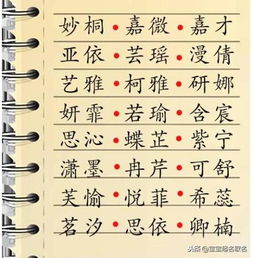 妙桐•嘉微•嘉才
亚依•芸瑶•漫倩
艺雅•柯雅•研娜
妍霏•若瑜•含宸
思沁•蝶芷•紫宁
潇墨•冉芹•可舒
芙愉•悦菲•希蕊
茗汐•思依•卿楠